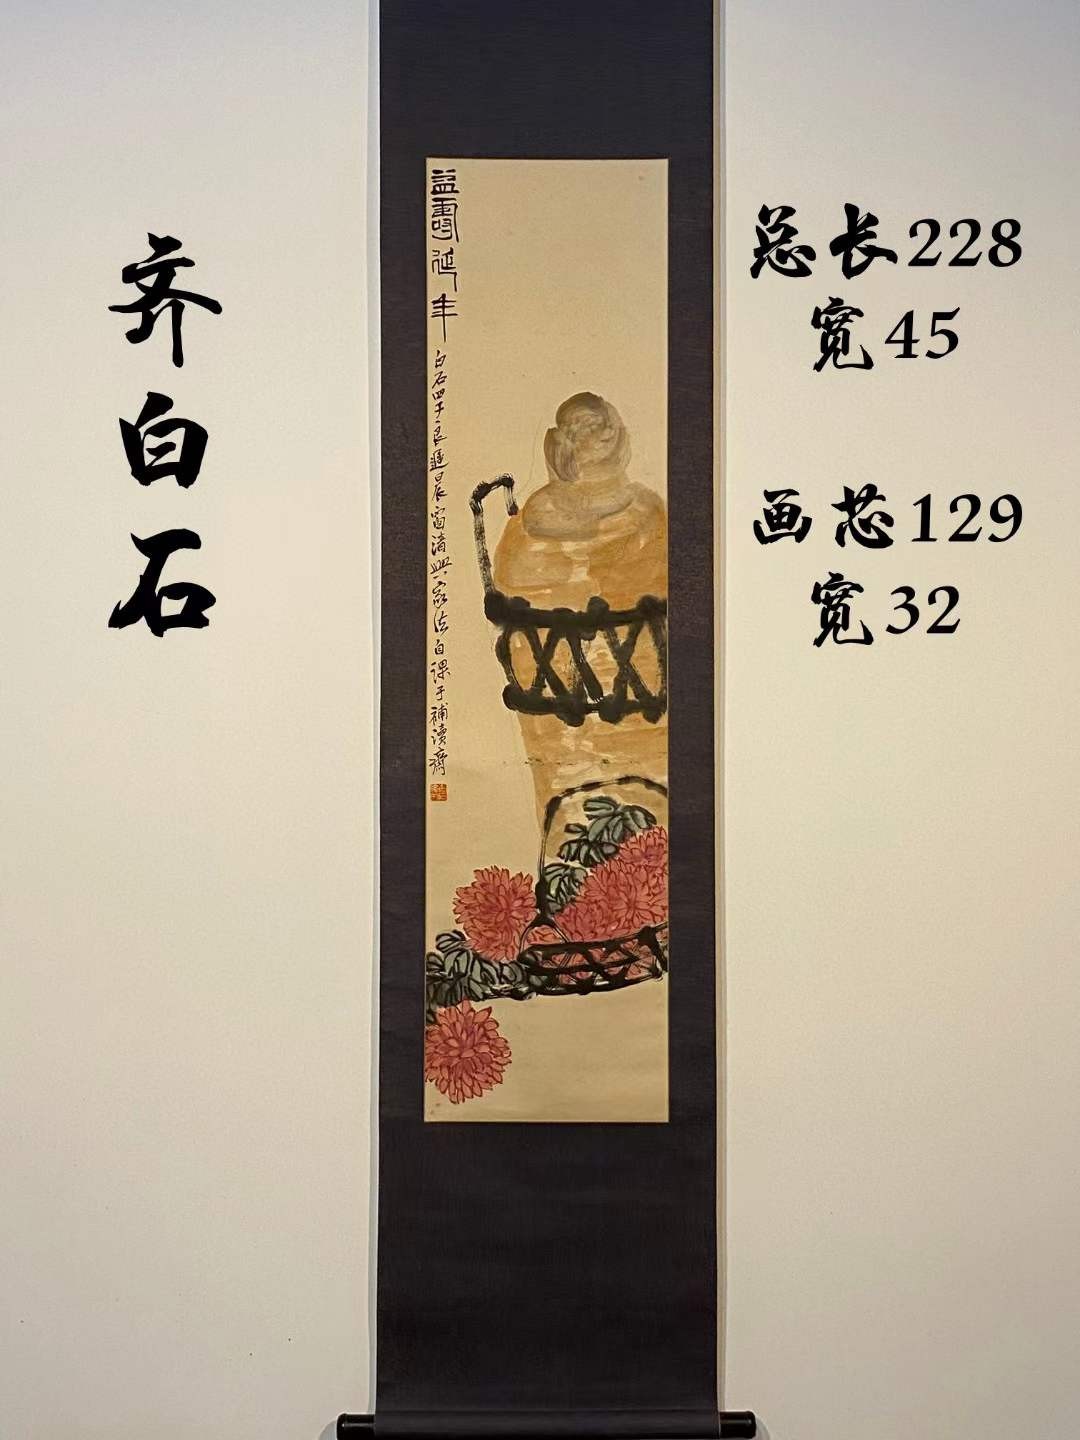 齐白石
总长228
宽45
画芯129
宽32
益壽延年
白石四子良遲晨窗清興家法自課于補讀齋